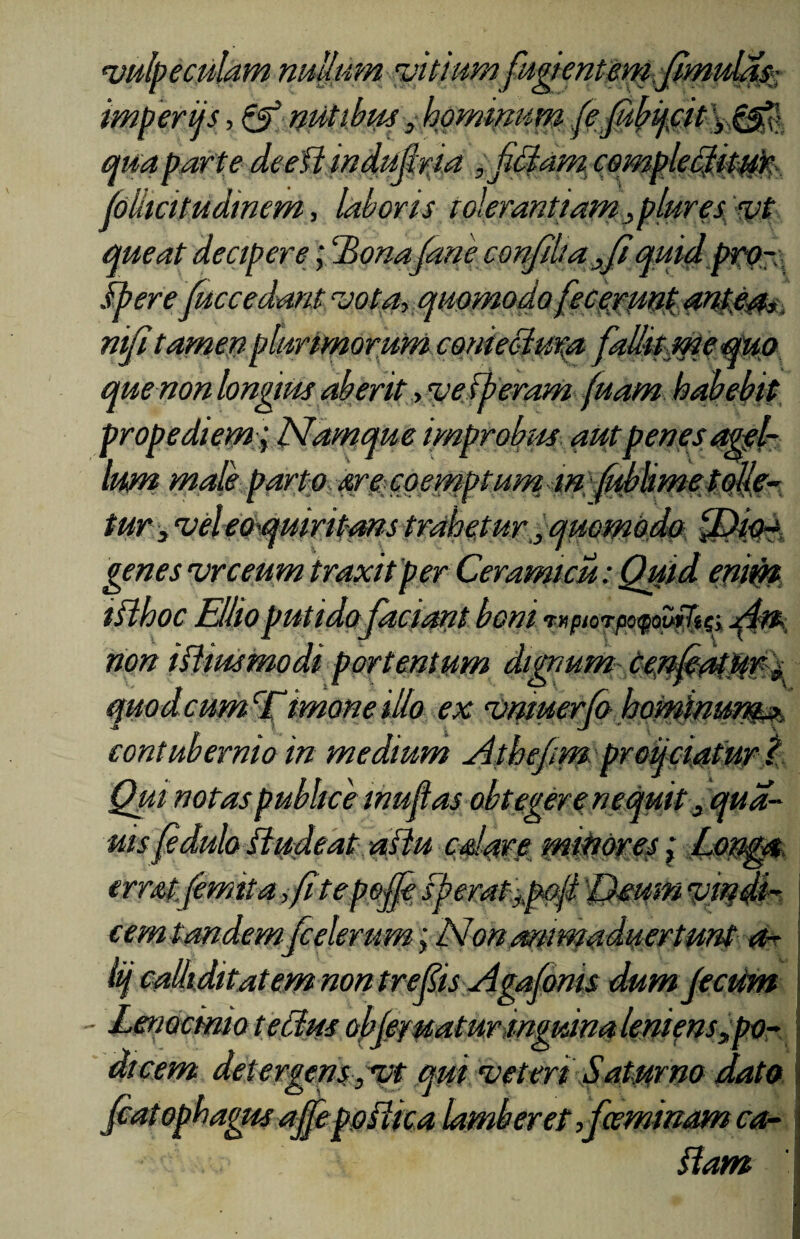 vulpeculam nullum vitium fugientem ſimulās;
imperijs, & nutibus, hominum ſe ſubijcit, &
qua parte deeſt induſtria, fictam complectitur
ſollicitudinem, laboris tolerantiam, plures vt
queat decipere; Bona ſane conſilia, ſi quid pro-
ſpere ſuccedant vota, quomodo fecerunt antea,
niſi tamen plurimorum coniectura fallit, me quo
que non longius aberit, veſperam ſuam habebit
propediem; Namque improbus aut penes agel-
lum male parto ære coemptum in ſublime tolle-
tur, vel eo quiritans trahetur, quomodo Dio-
genes vrceum traxit per Ceramicū: Quid enim
iſthoc Ellio putido faciant boni An
non iſtiusmodi portentum dignum cenſeatur,
quod cum Timone illo ex vniuerſo hominum
contubernio in medium Atheſim proijciatur?
Qui notas publice inuſtas obtegere nequit, quā-
uis ſedulo ſtudeat aſtu cælare minores; Longa
errat ſemita, ſi te poſſe ſperat, poſt Deum vindi-
cem tandem ſcelerum; Non animaduertunt a-
lij calliditatem non treſsis Agaſonis dum ſecum
Lenocinio tectus obſeruatur inguina leniens, po-
dicem detergens, vt qui veteri Saturno dato
ſcatophagus aſſe poſtica lamberet, fœminam ca-
ſtam